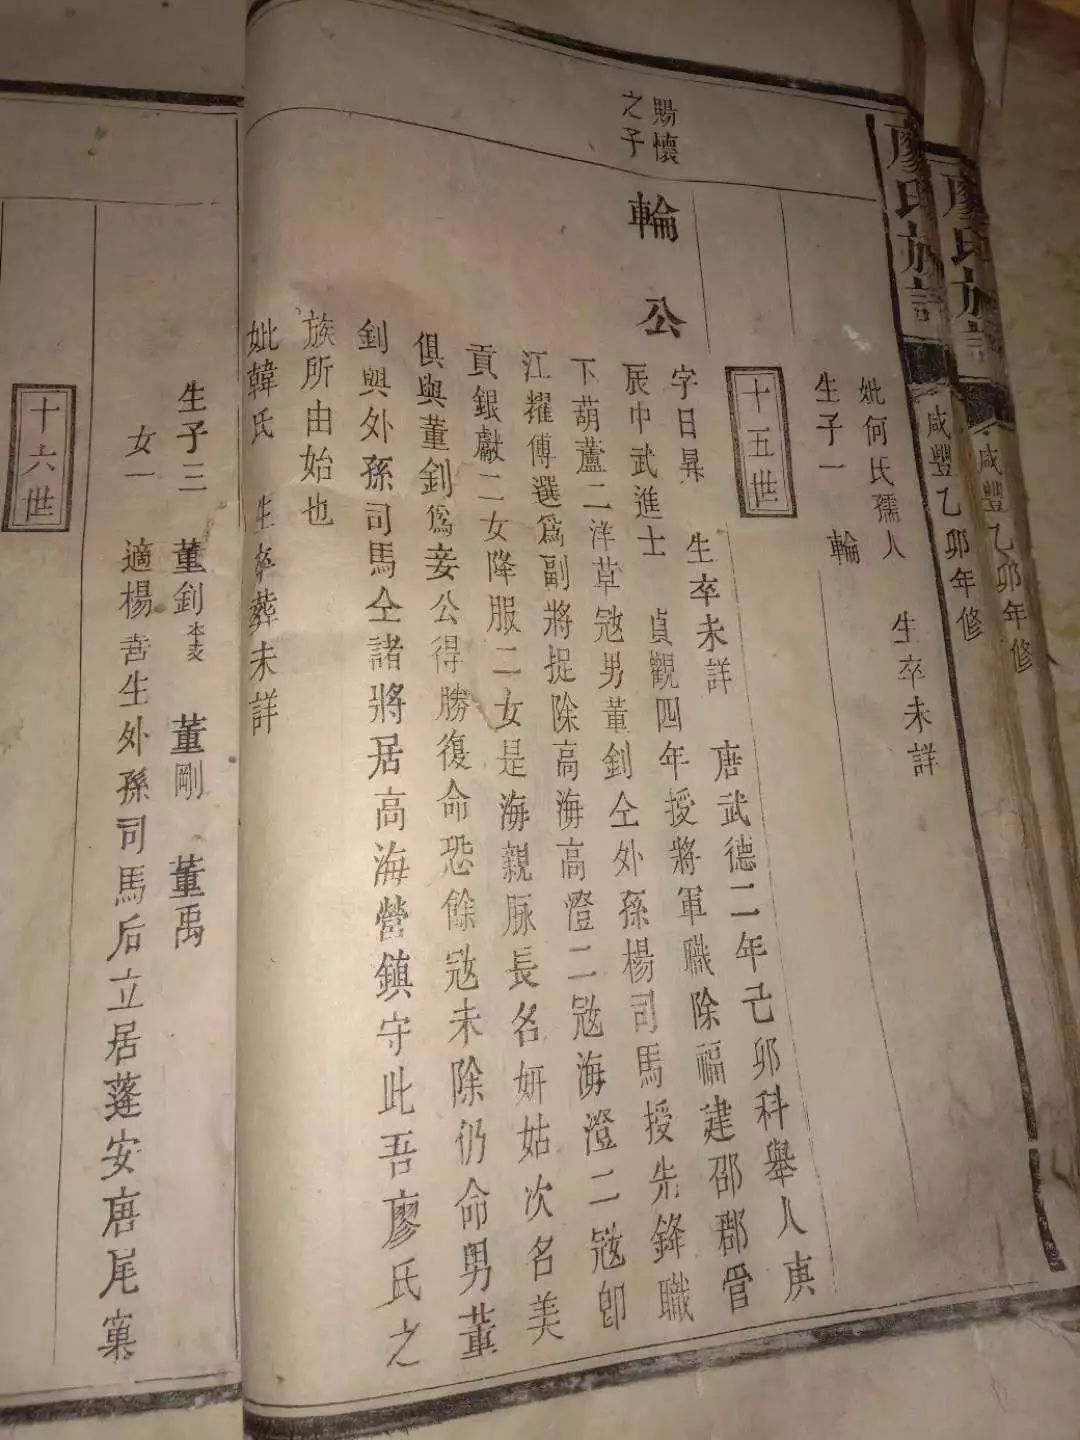 廖氏族譜
咸豐乙卯年修
廖氏族譜
咸豐乙卯年修
妣何氏孺人 生卒未詳
生子一 輪
十五世
賜懷
之子
輪公
字日昇 生卒未詳 唐武德二年己卯科舉人庚
辰中武進士 貞觀四年授將軍職除福建邵郡管
下葫蘆二洋草寇男董釗仝外孫楊司馬授先鋒職
江耀傅選為副將捉除高海高澄二寇海澄二寇卽
貢銀獻二女降服二女是海親脉長名妍姑次名美
俱與董釗為妾公得勝復命恐餘寇未除仍命男董
釗與外孫司馬仝諸將居高海營鎮守此吾廖氏之
族所由始也
妣韓氏 生卒葬未詳
生子三 董釗 董剛 董禹
女一 適楊 生外孫司馬后立居蓬安唐尾窠
十六世